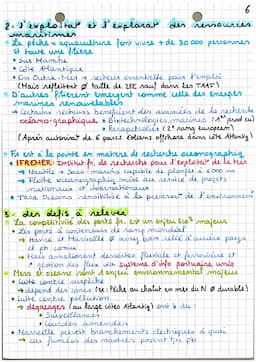 6
2- L'exploitat° et l'explorat° des ressources
maritimes
La pêche + aquaculture font vivre + de 30 000 personnes
et toute une filière
→ Sur Manche
→ Côte Atlantique
→ En Outre-Mer = secteur essentielle pour l'emploi
(Mais reflètent ø taille de ZEE sauf dans les TAAF)
D'autres filières émergent comme celle des énergies
marines renouvelables
→ Certains secteurs bénéficient des avancées de la recherche
océanographique : Biotechnologies marines (1er prod eu)
Parapétrolifs (2e rang européen)
(Après autorisat° de 6 parcs éoliens offshore dans côte Atlantiq)
Fr est à la pointe en matière de recherche océanographiq
IFREMER: Institut fr. de recherche pour l'exploitat° de la Mer
→ Nautile = Sous-marins capable de plonger à 6000 m
→ Flotte océanographiq mise au service de projets
nationaux et internationaux
→ Tara Oceans sensibilise à la préservat° de l'environnement
3- des défis à relever
La compétitivité des ports fr. est un enjeu eco^c majeurs
→ Les ports à conteneurs de rang mondial
→ Havre et Marseille ø assez bien relié à arrière pays
et pr concu
→ Mais améliorement dessertes fluviale et ferroviaire et
gestion des flux via système d'info portuaire unifié
Mers et océans sont l'enjeu environnemental majeurs
Lutte contre surpêche
→ dépend des zones (ex: Pêche au chalut en mer du N ø durable)
Lutte contre pollution
→ dégazages (au large côtes Atlantiq) sont b du :
Surveillances
Lourdes amendes
Marseille prévoit branchements électriques à quai
→ car fumées des navires parent 1/5 pb